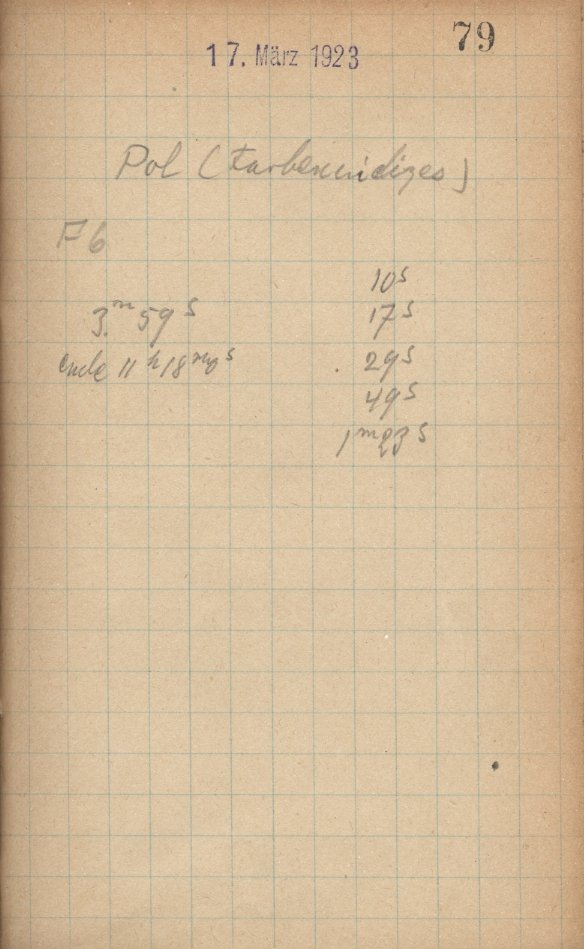 79
17. März 1923
Pol (Farbenindizes)
F6
10s
3.m 59s 17s
Ende 11h 18m 0s 29s
49s
1m 23s